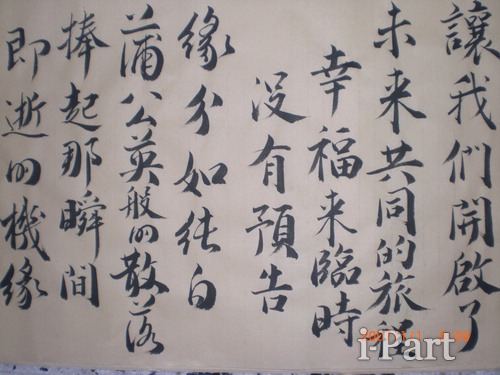 讓我們開啟了
未来共同的旅程
幸福来臨時
没有預告
緣分如純白
蒲公英般的散落
捧起那瞬間
即逝的機緣
i-Part